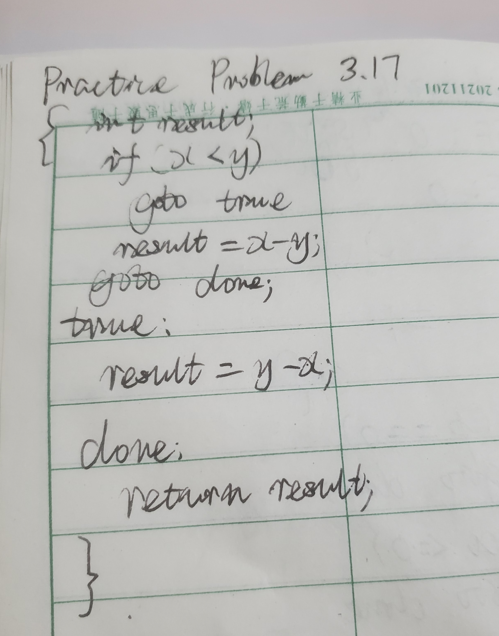 Practice Problem 3.17
20211201
{ int result;
if (x < y)
goto true
result = x-y;
goto done;
true:
result = y-x;
done:
return result;
}